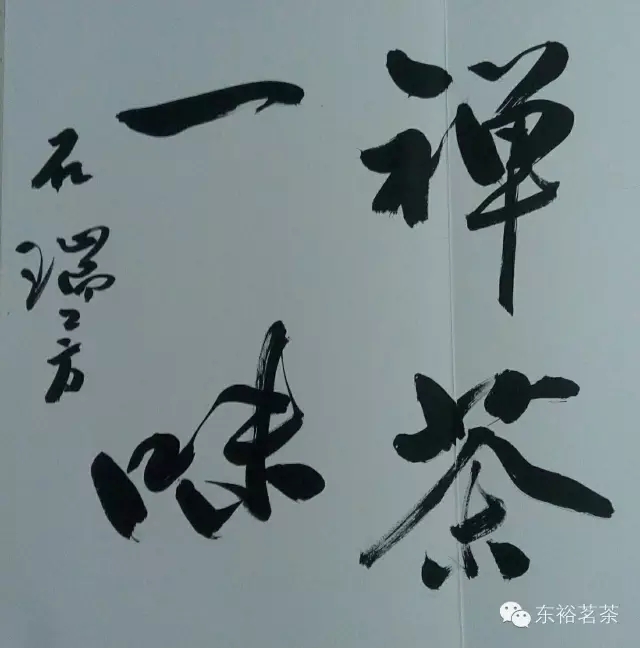 禅茶
一味
石瑞芳
东裕茗茶